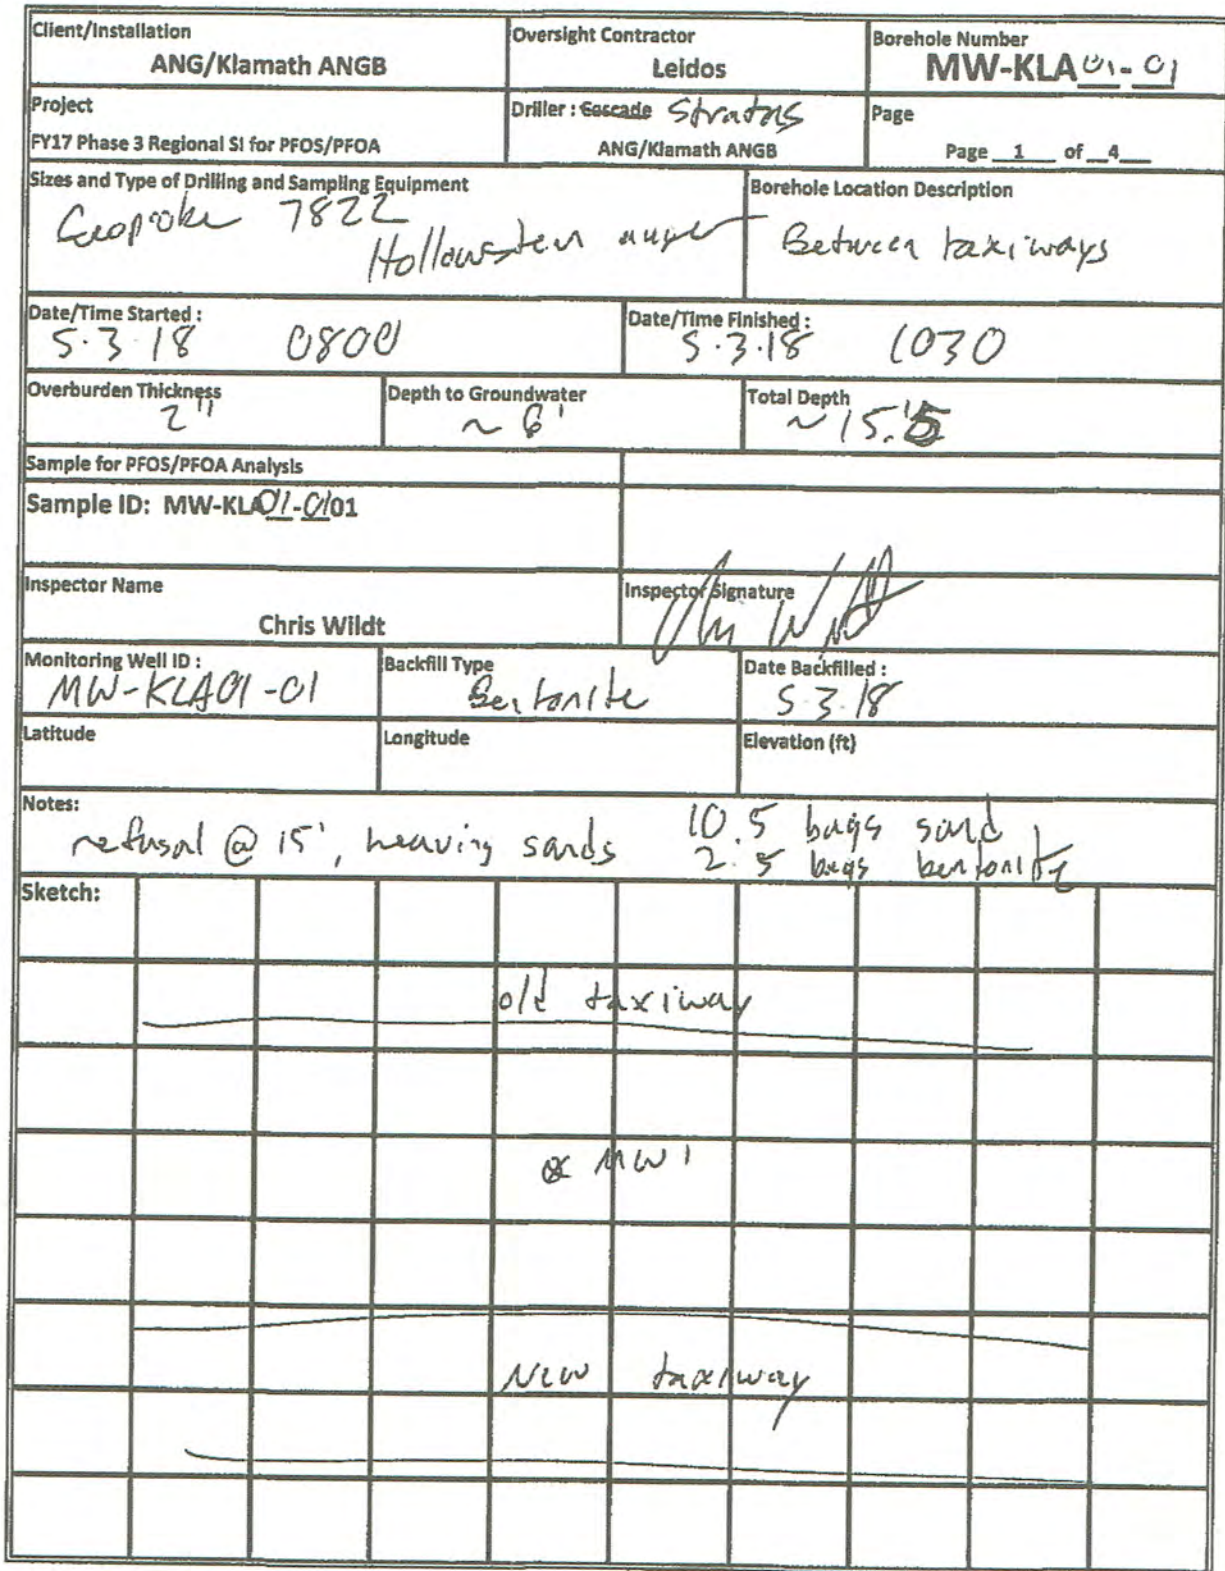 Client/Installation
ANG/Klamath ANGB
Oversight Contractor
Leidos
Borehole Number
MW-KLA01-01
Project
FY17 Phase 3 Regional SI for PFOS/PFOA
Driller : Cascade Stratus
ANG/Klamath ANGB
Page
Page 1 of 4
Sizes and Type of Drilling and Sampling Equipment
Geoprobe 7822
Hollowstem auger
Borehole Location Description
Between taxiways
Date/Time Started :
5.3.18 0800
Date/Time Finished :
5.3.18 1030
Overburden Thickness
2"
Depth to Groundwater
~
Total Depth
~
Sample for PFOS/PFOA Analysis
Sample ID: MW-KLA01-0101
Inspector Name
Chris Wildt
Inspector Signature
Monitoring Well ID :
MW-KLA01-01
Backfill Type
Bentonite
Date Backfilled :
5.3.18
Latitude
Longitude
Elevation (ft)
Notes:
refusal @ 15', heaving sands
10.5 bags sand
2.5 bags bentonite
Sketch:
old taxiway
MW1
New taxiway